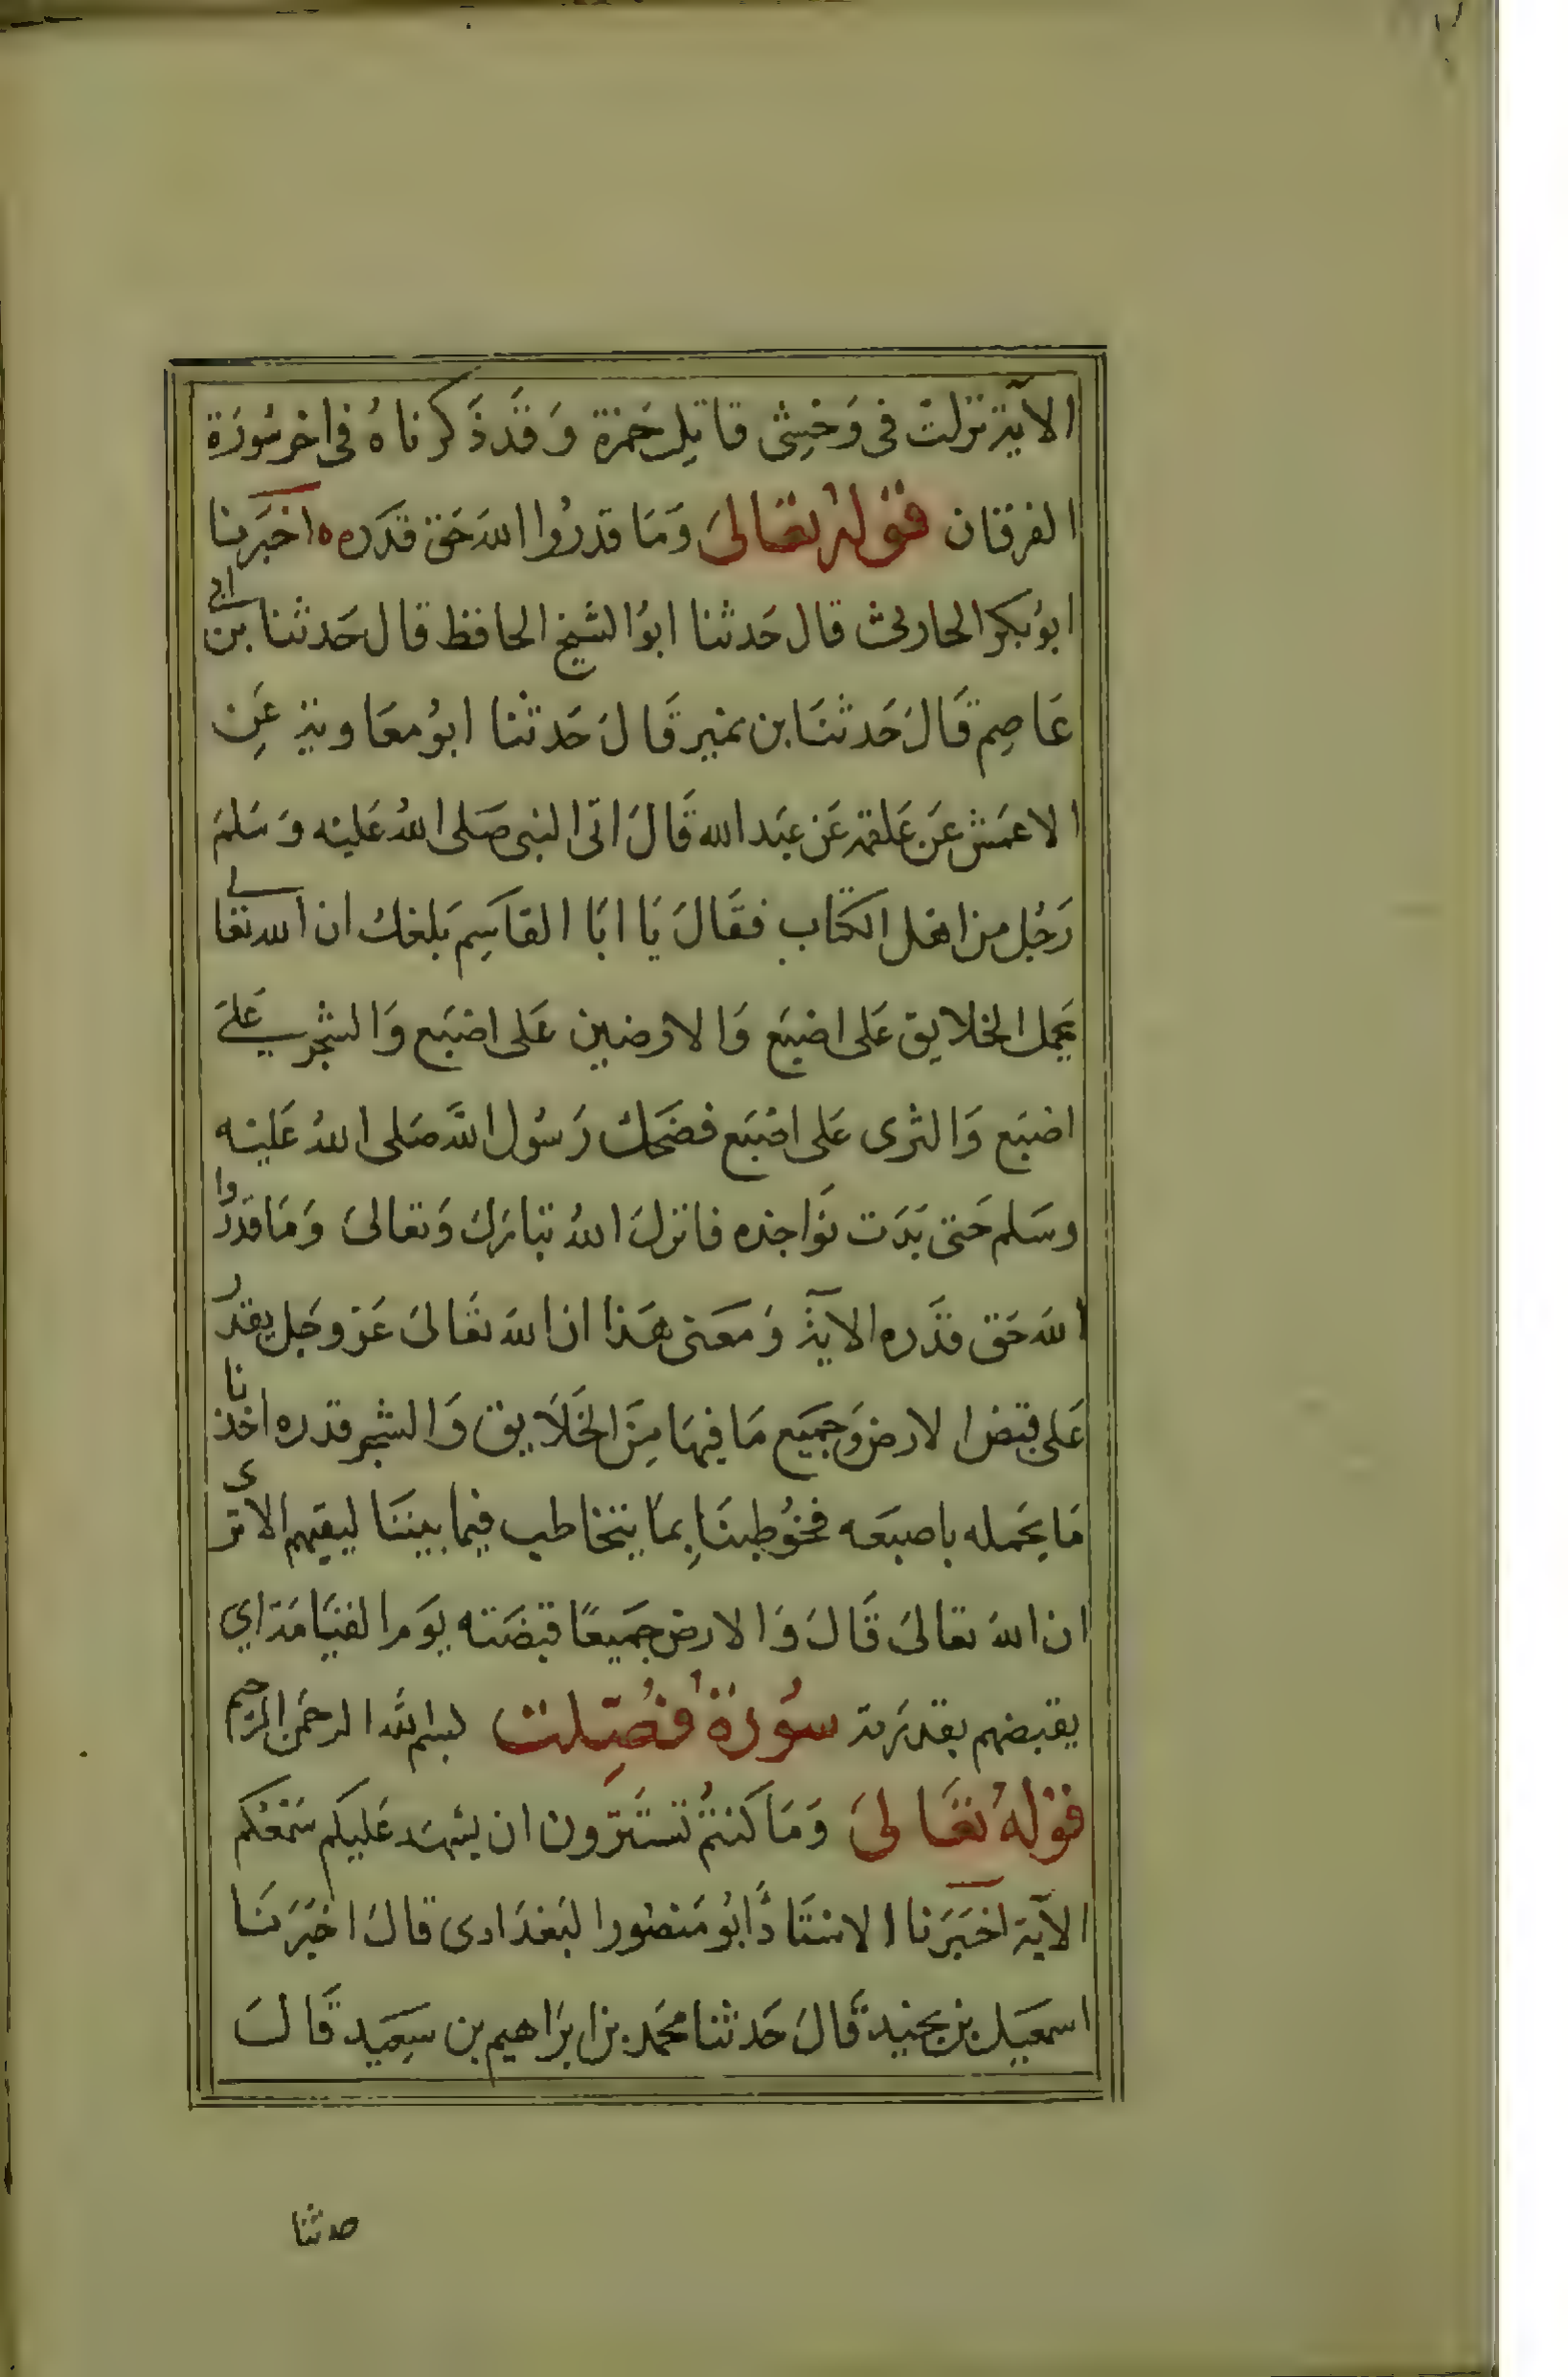 الآية نزلت فى وَحشِى قاتِل حَمزة وَقَد ذَكرناهُ فى اخر سُورَة
الفرقان قوله تعَالىَ وَمَا قدرُوا اللهَ حَق قدَره اخبَرنا
ابوُ بكر الحارثى قال حَدثنا ابوُ الشيخ الحافظ قال حَدثنا بن ابى
عَاصِم قَالَ حَدثنَا بن نمير قَالَ حَدثنا ابوُ معَاوية عَنِ
الاعمَش عَن عَلقمة عَن عبَد الله قَالَ اتى النبى صَلى اللهُ عَليْه وَسَلمَ
رَجُل من اهل الكتاب فقَالَ يَا ابَا القاسِم بَلغك ان الله تعالى
يحَمل الخلايق عَلى اصبَع وَالارضين عَلى اصبَع وَالشجر عَلىَ
اصبَع وَالثرى عَلى اصبَع فضَحَك رَسُول الله صَلى اللهُ عَليْه
وسَلم حَتى بَدَت نَواجذه فانزلَ اللهُ تبَارَك وَتعالىَ وَمَا قدرُوا
اللهَ حَق قدَره الآية وَمَعنى هَذا ان اللهَ تعَالىَ عَز وجَل يقدر
عَلى قبض الارض وَجميَع مَا فيهَا مِنَ الخَلَايق وَالشجر قدره اخذنا
مَا يحَمله باصبعَه فخوُطبنَا بِمَا يتخاطب فيما بيننَا ليفهم الا ترى
ان اللهَ تعالىَ قَالَ وَالارض جَميعًا قبضَته يوَم القيَامَة اي
يقبضهم بقدرَته سُورَة فُصِّلت بسم الله الرحمَن الرحيم
قوْلهُ تعَالىَ وَمَا كنتمُ تَستَترَون ان يشهَد عَليكم سَمْعُكم
الآية اخبَرَنا الاستَاذُ ابُو مَنصُور البَغدَادى قالَ اخبَرَنَا
اسمعَيل بن نجيد قَالَ حَدثنا محمَد بن ابرَاهيم بن سَعِيَد قَالَ
حدثنا